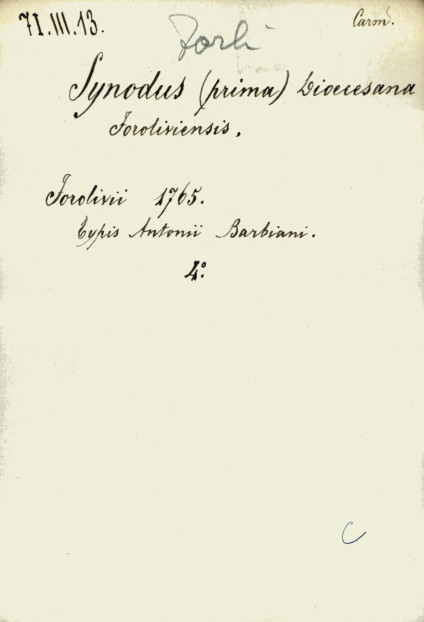 71.III.13.
Carm.
Forlì
Synodus (prima) Dioecesana
Foroliviensis.
Forolivii 1765.
Typis Antonii Barbiani.
4.º
C